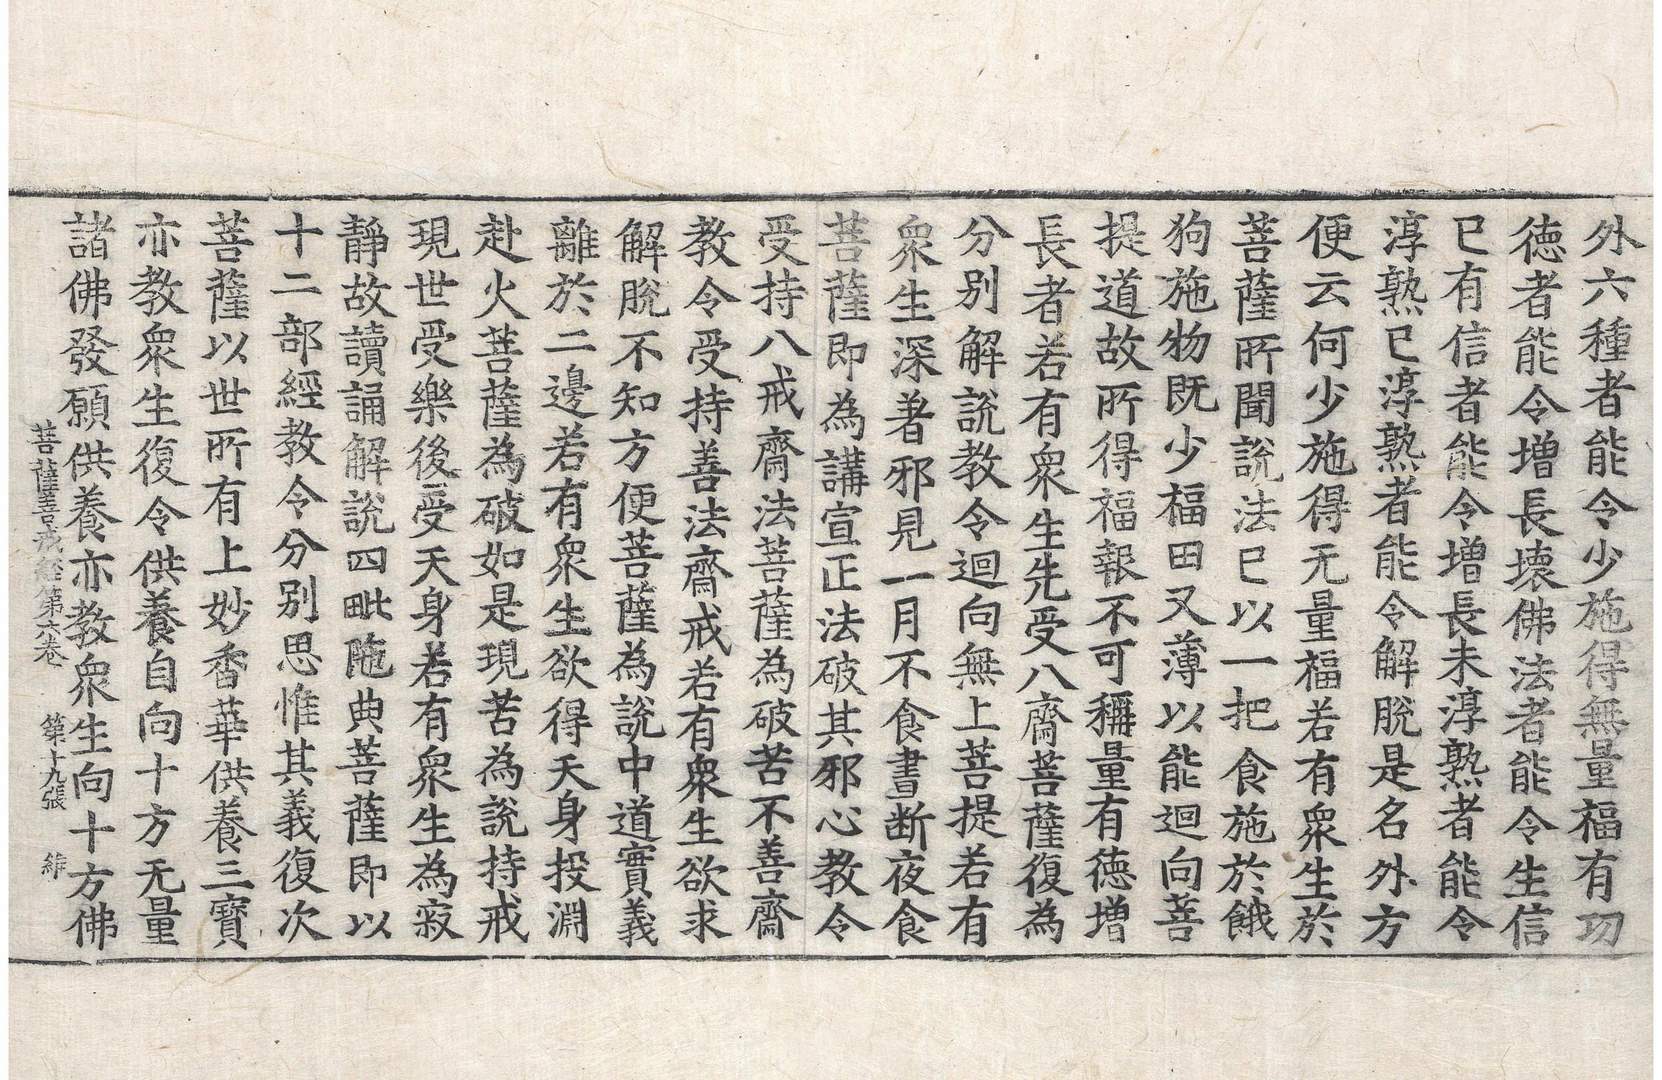 外六種者能令少施得無量福有功
徳者能令增長壞佛法者能令生信
已有信者能令增長未淳熟者能令
淳熟已淳熟者能令解脫是名外方
便云何少施得无量福若有衆生於
菩薩所聞說法已以一把食施於餓
狗施物既少福田又薄以能迴向菩
提道故所得福報不可稱量有徳增
長者若有衆生先受八齋菩薩復為
分別解說教令迴向無上菩提若有
衆生深著邪見一月不食晝断夜食
菩薩即為講宣正法破其邪心教令
受持八戒齋法菩薩為破苦不善齋
教令受持善法齋戒若有衆生欲求
解脫不知方便菩薩為說中道實義
離於二邊若有衆生欲得天身投淵
赴火菩薩為破如是現苦為說持戒
現世受樂後受天身若有衆生為寂
靜故讀誦解說四毗陁典菩薩即以
十二部經教令分別思惟其義復次
菩薩以世所有上妙香華供養三寳
亦教衆生復令供養自向十方无量
諸佛發願供養亦教衆生向十方佛
菩薩善戒經第六卷 第十九張 維